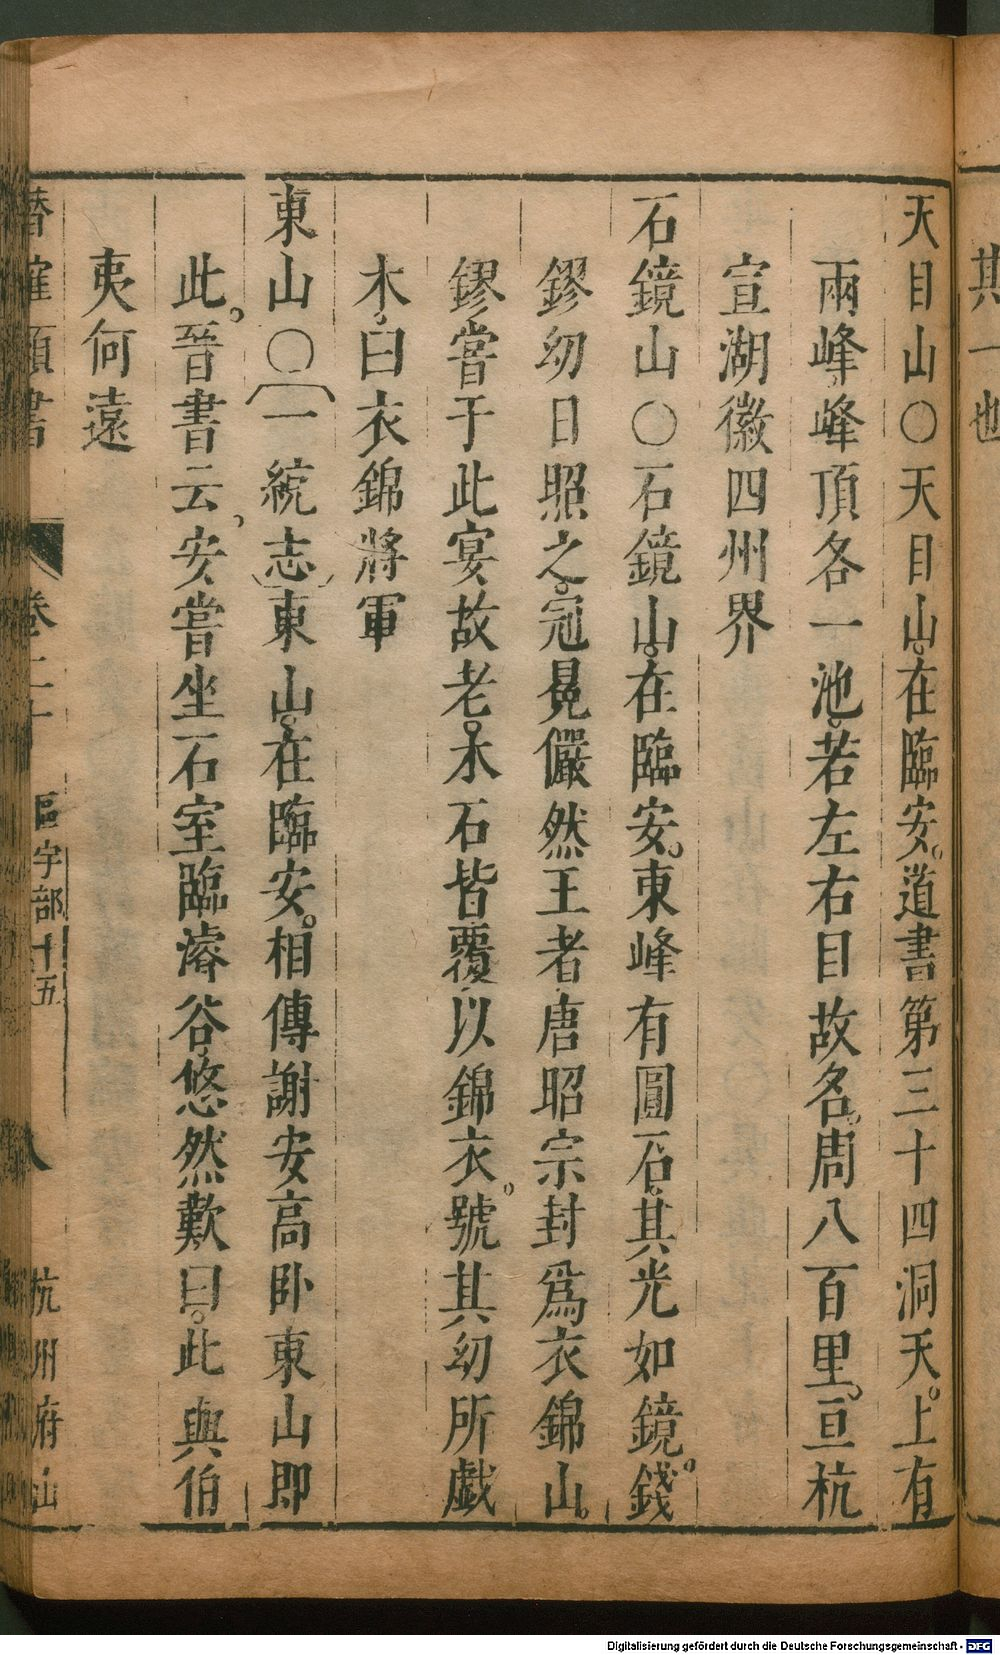 其一也
天目山○天目山在臨安道書第三十四洞天上有
兩峰峰頂各一池若左右目故名周八百里亘杭
宣湖徽四州界
石鏡山○石鏡山在臨安東峰有圓石其光如鏡錢
鏐幼日照之冠冕儼然王者唐昭宗封爲衣錦山
鏐嘗于此宴故老木石皆覆以錦衣號其幼所戲
木曰衣錦將軍
東山○一統志東山在臨安相傳謝安高卧東山即
此晉書云安嘗坐石室臨濬谷悠然歎曰此與伯
夷何遠
潛確類書 卷二十 區宇部十五 八 杭州府山
Digitalisierung gefördert durch die Deutsche Forschungsgemeinschaft - DFG